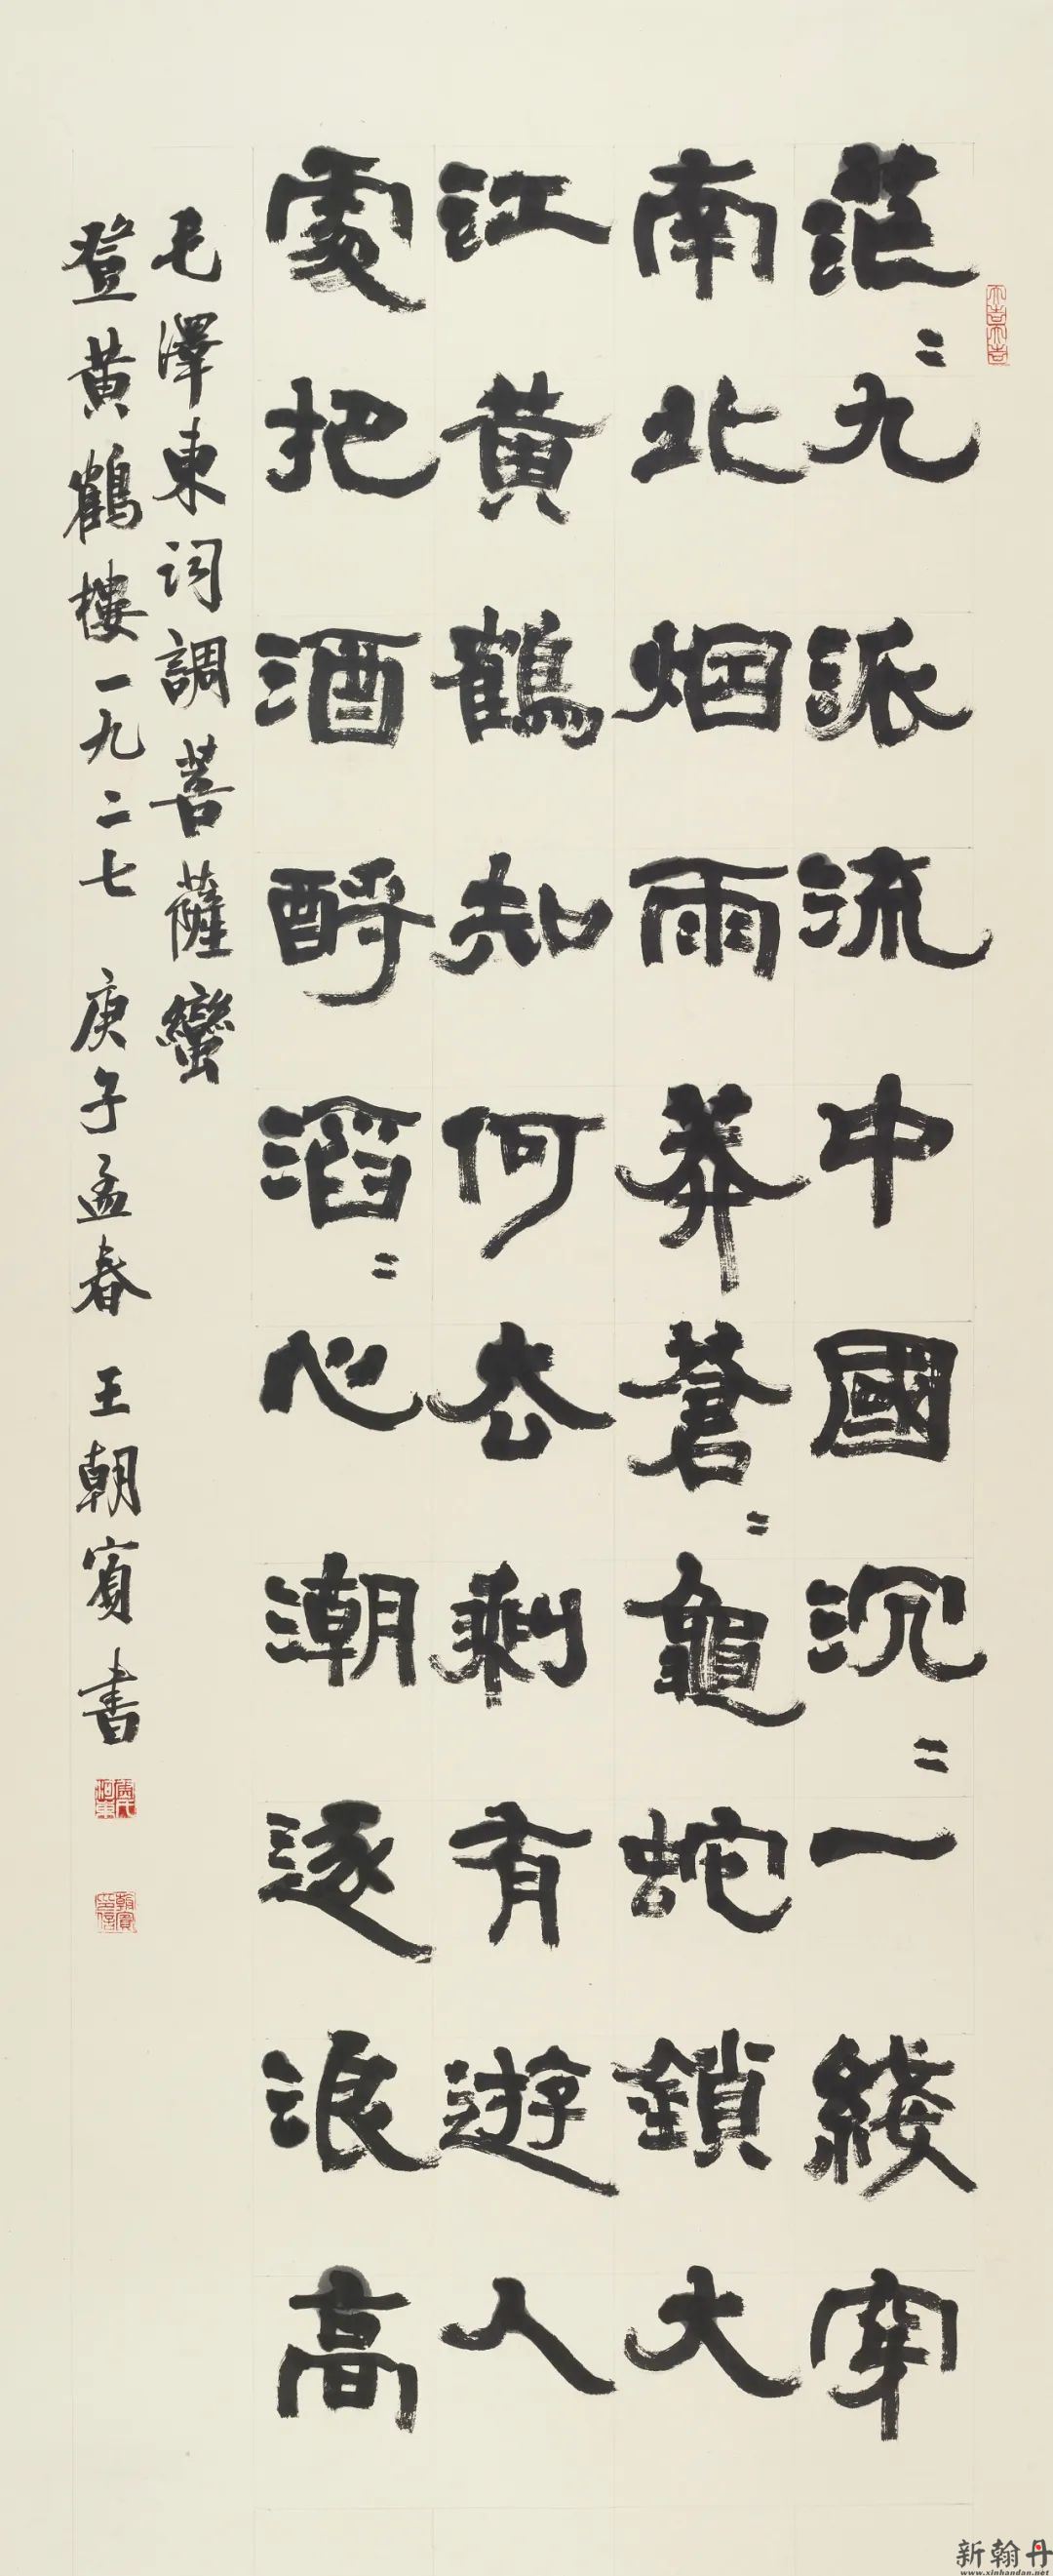 茫〻九派流中國沉〻一綫穿
南北烟雨莽蒼〻龜蛇鎖大
江黃鶴知何去剩有遊人
處把酒酹滔〻心潮逐浪高
毛澤東詞調菩薩蠻
登黃鶴樓一九二七 庚子孟春 王朝賓書
大吉大吉
新翰丹
www.xinhandan.net